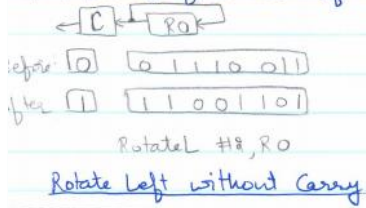 C R0
Before: 0 0 1 1 1 0 0 1 1
After 1 1 1 0 0 1 1 0 1
RotateL #2, R0
Rotate Left without Carry